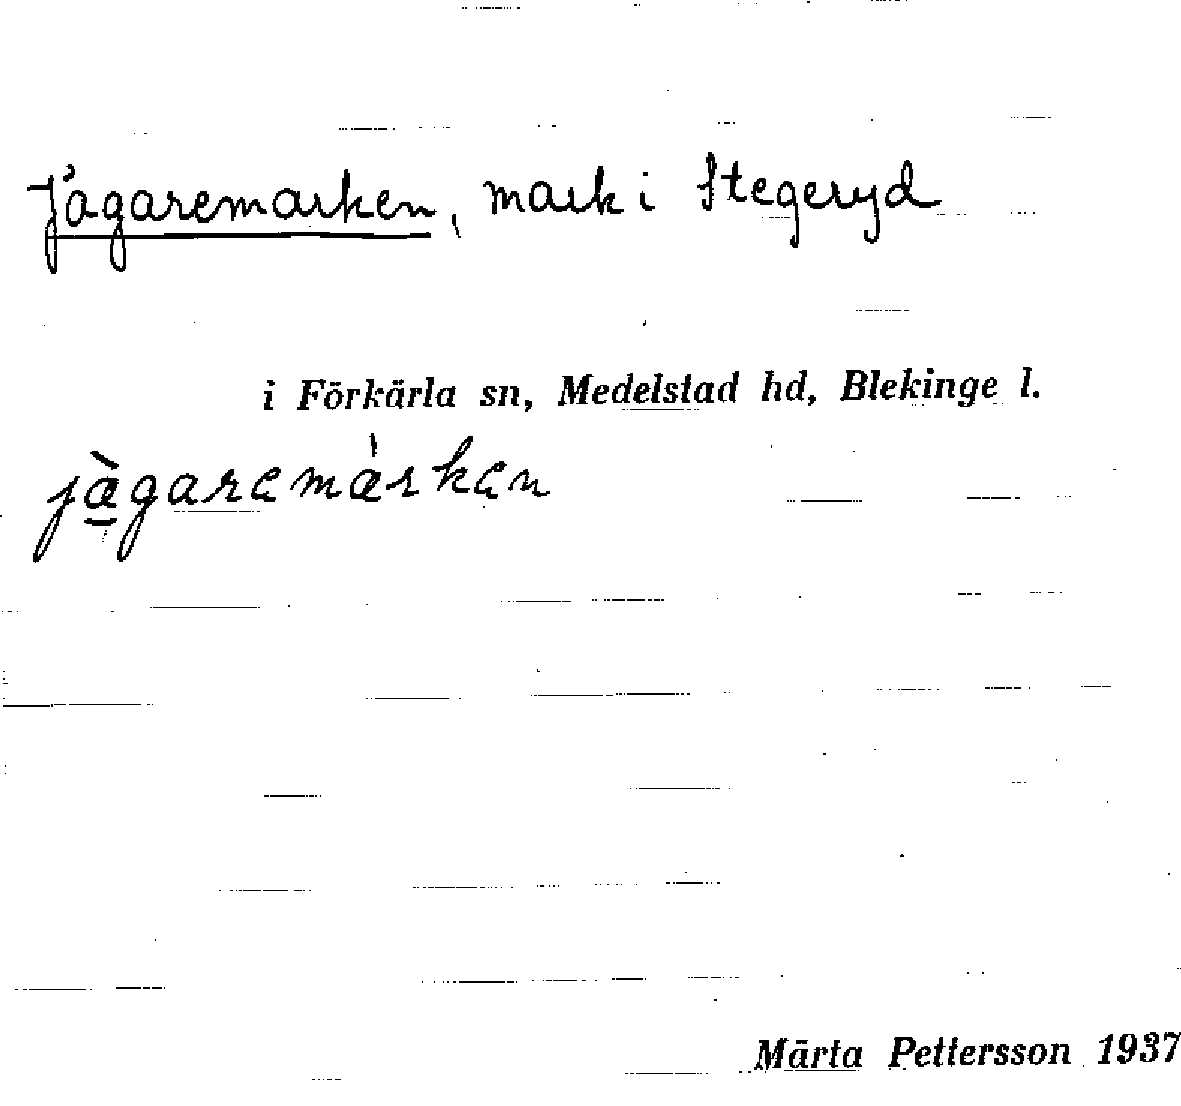 Jägaremarken, mark i Stegeryd
i Förkärla sn, Medelstad hd, Blekinge l.
jä̀garemárken
Märta Pettersson 1937